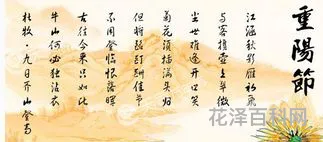 重陽節
江涵秋影雁初飞
与客携壶上翠微
尘世难逢开口笑
菊花须插满头归
但将酩酊酬佳节
不用登临恨落晖
古往今来只如此
牛山何必独沾衣
杜牧·九日齐山登高
花泽百科网